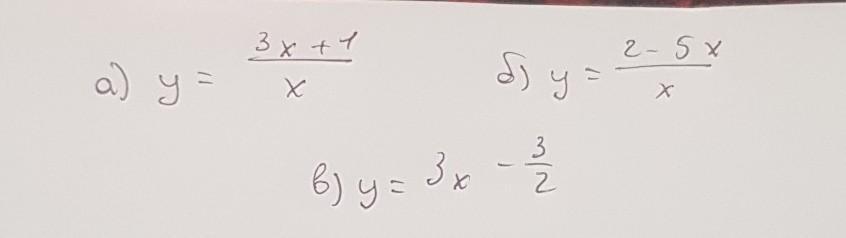 а) y = (3x + 1)/x б) y = (2 - 5x)/x
в) y = 3x - 3/2